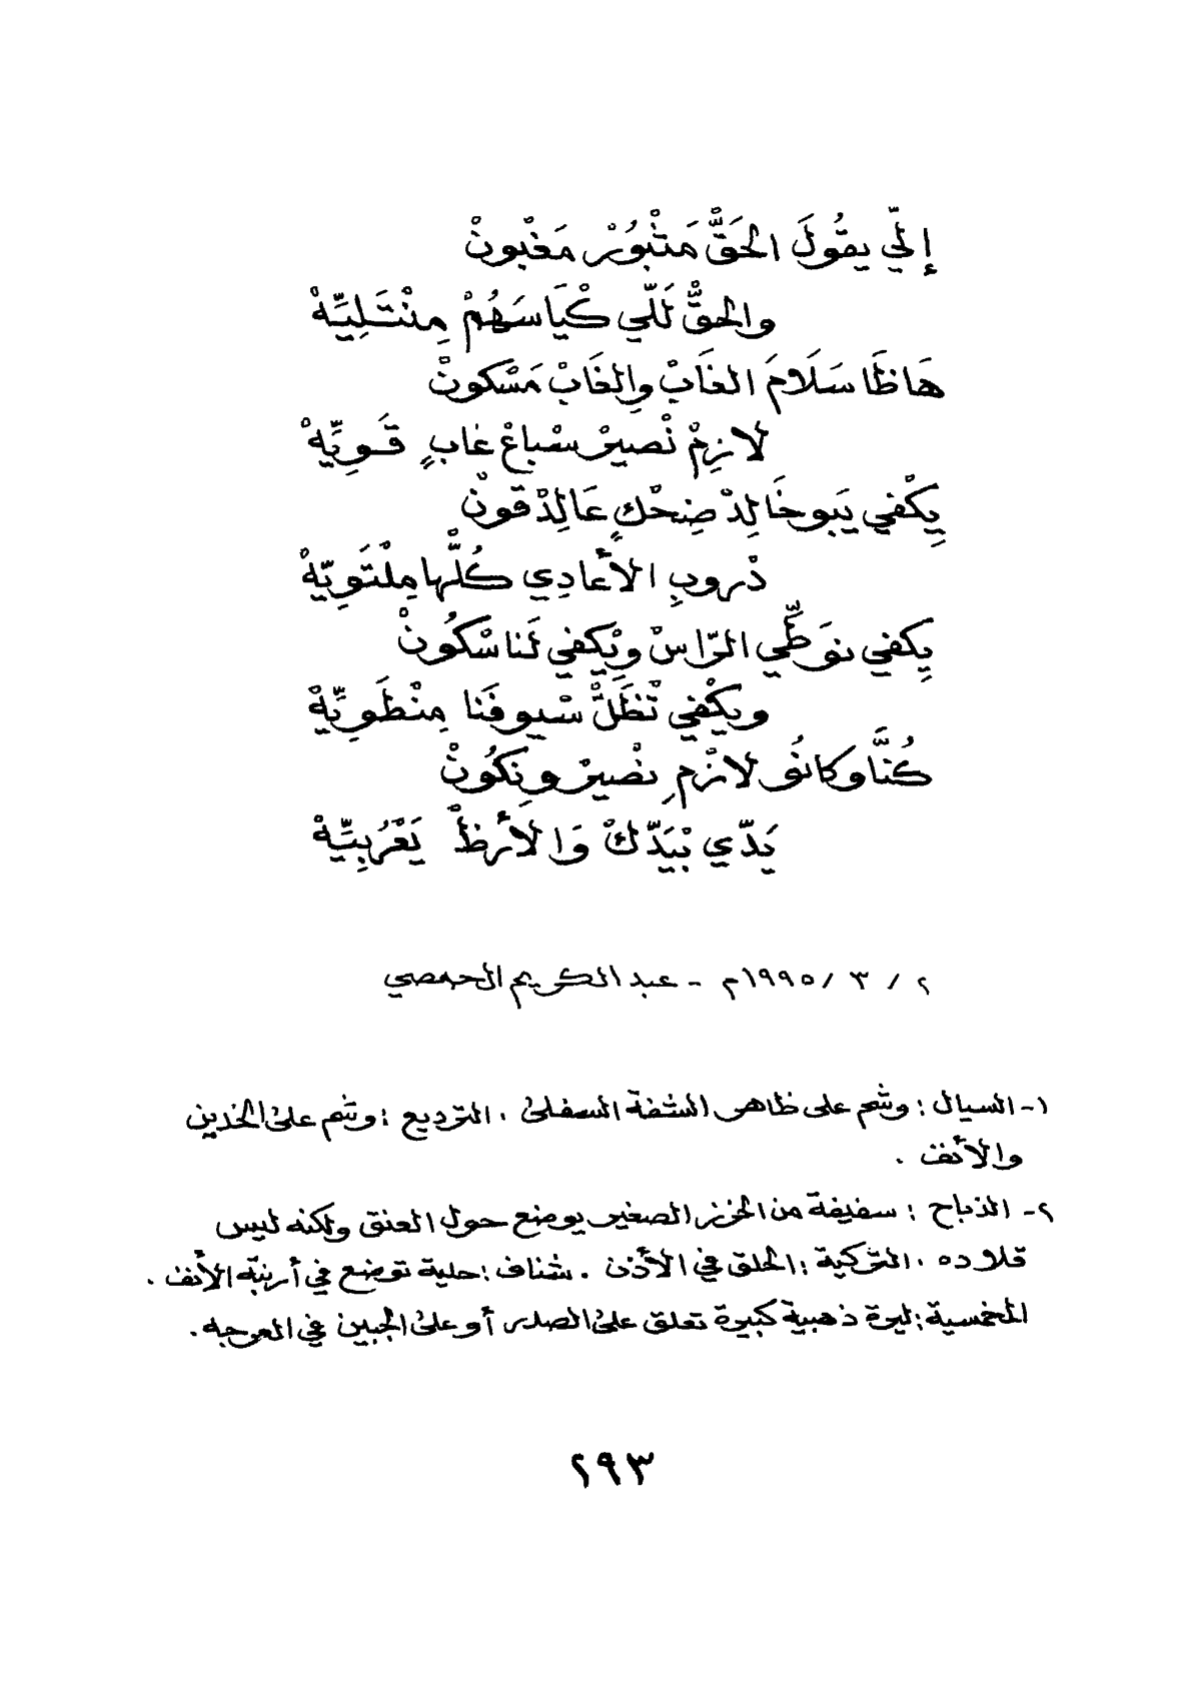 إلّي يقُولَ الحَقَّ مَثْبُورْ مَغْبُونْ
والحقُّ لَلّي كْيَاسَهُمْ مِنْتَلِيِّهْ
هَاظَا سَلَامَ الغَابْ والِغَابْ مَسْكونْ
لازِمْ نْصيرْ سْباعْ غابٍ قَوِيِّهْ
يِكْفي يَبوخَالِدْ ضِحْكٍ عَالِدْقونْ
دْروبِ الأعادِي كُلّْها مِلْتَوِيّهْ
يِكفي نوَطِّي الرّاسْ وِيْكفي لَنا سْكُونْ
ويكْفي تْظَلّْ سْيوفَنا مِنْطَوِيِّهْ
كُنَّا وكانُو لازْمِ نصْيرْ ونِكُونْ
يَدّي بْيَدّكْ وَالأرظْ يَعْرُبِيِّهْ
٢ / ٣ /١٩٩٥م - عبد الكريم الحمصي
١- السيال : وشم على ظاهر الشفة السفلى . الترديع : وشم على الخدين
والأنف .
٢- الذباح : سفيفة من الخرز الصغير يوضع حول العنق ولكنه ليس
قلاده . التركية : الحلق في الأذن . شناف : حلية توضع في أرنبة الأنف .
المخمسية : ليرة ذهبية كبيرة تعلق على الصدر أو على الجبين في العرجه .
٢٩٣